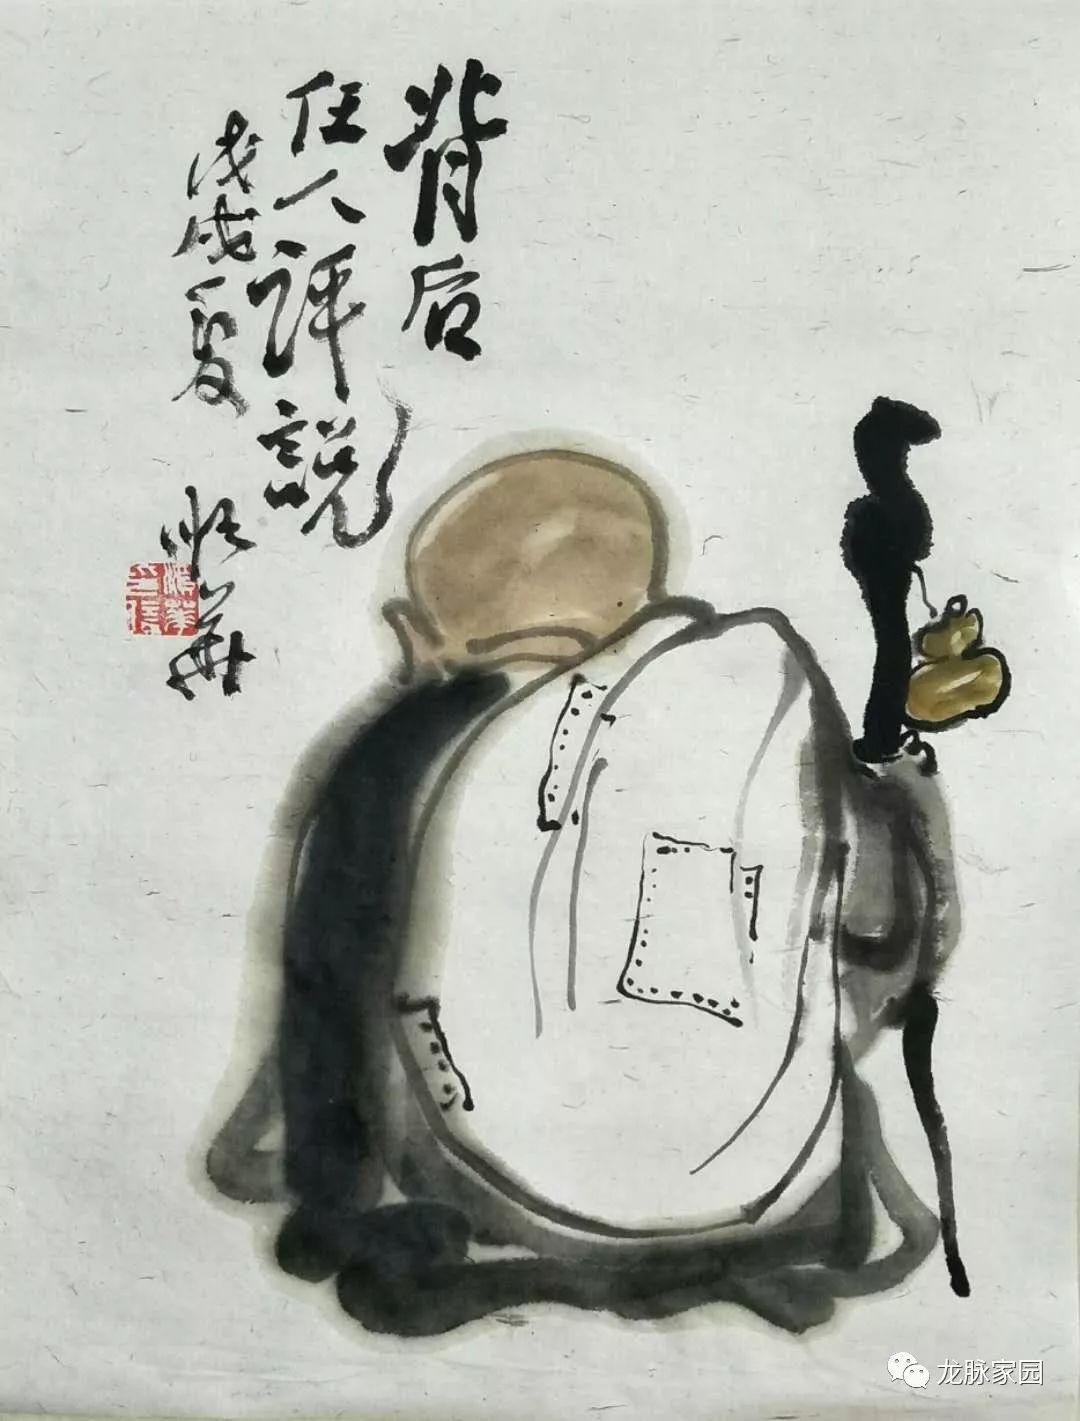 背后
任人评説
戊戌夏
顺华
龙脉家园